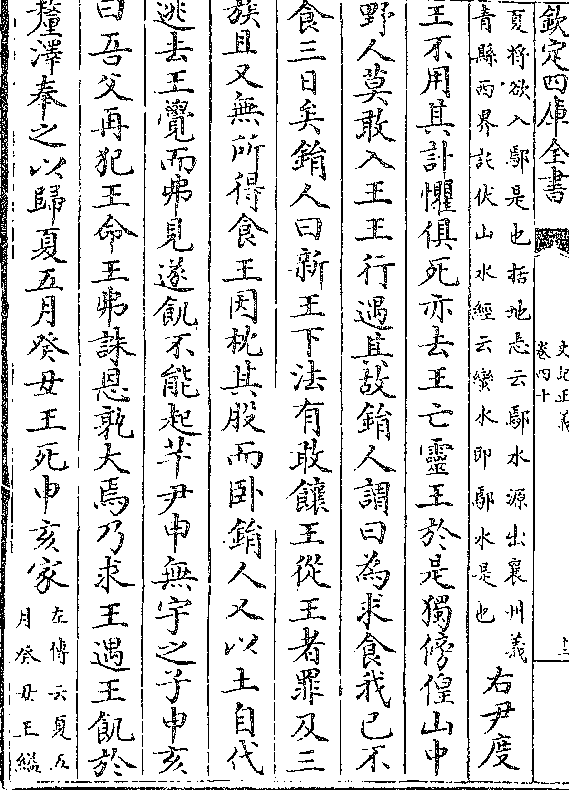 欽定四庫全書
史記正義
卷四十
夏将欲入鄢是也括地志云鄢水源出襄州義
青縣西界託伏山水經云蠻水即鄢水是也
右尹度
王不用其計懼俱死亦去王亡靈王於是獨傍偟山中
野人莫敢入王王行遇其故鋗人謂曰為求食我已不
食三日矣鋗人曰新王下法有敢饟王從王者罪及三
族且又無所得食王因枕其股而卧鋗人又以土自代
逃去王覺而弗見遂飢不能起芋尹申無宇之子申亥
曰吾父再犯王命王弗誅恩孰大焉乃求王遇王飢於
釐澤奉之以歸夏五月癸丑王死申亥家
左傳云夏五
月癸丑王縊